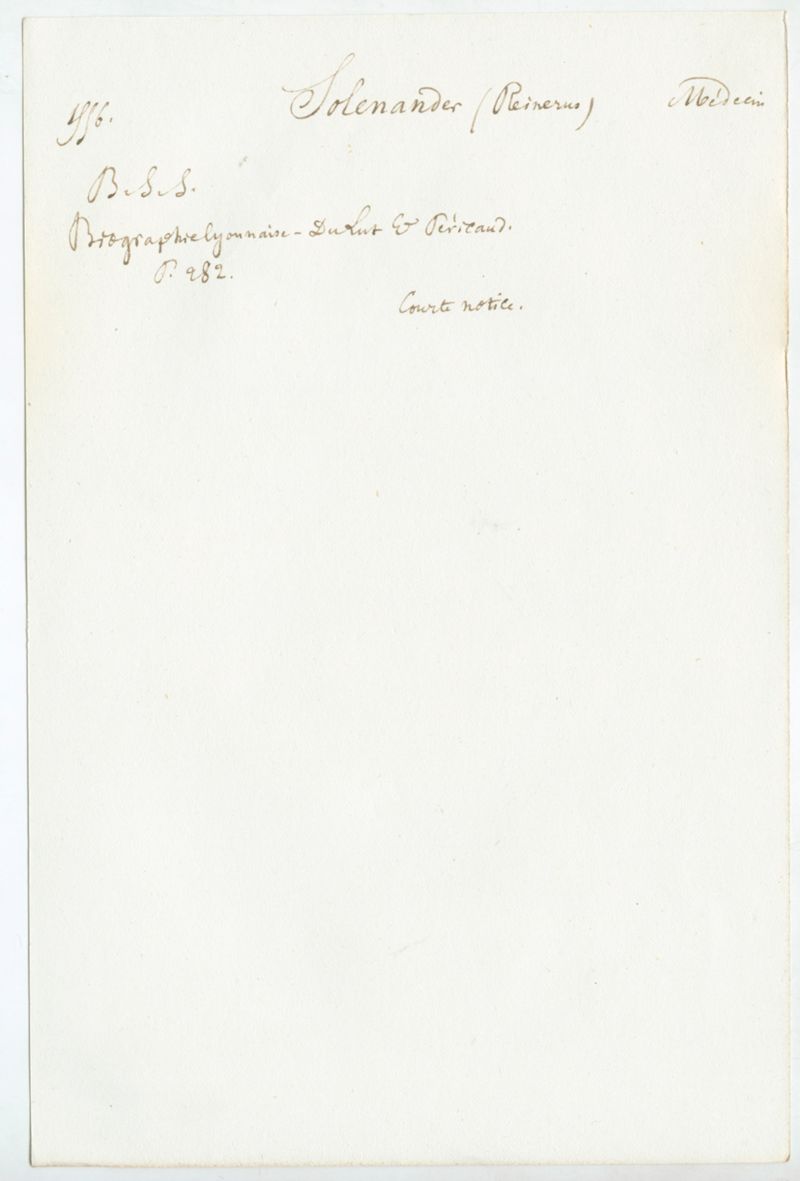 1556. Solenander (Reinerus) Médecin
B.S.S.
Biographie lyonnaise - Du Lut & Péricaud.
P. 282.
Courte notice.